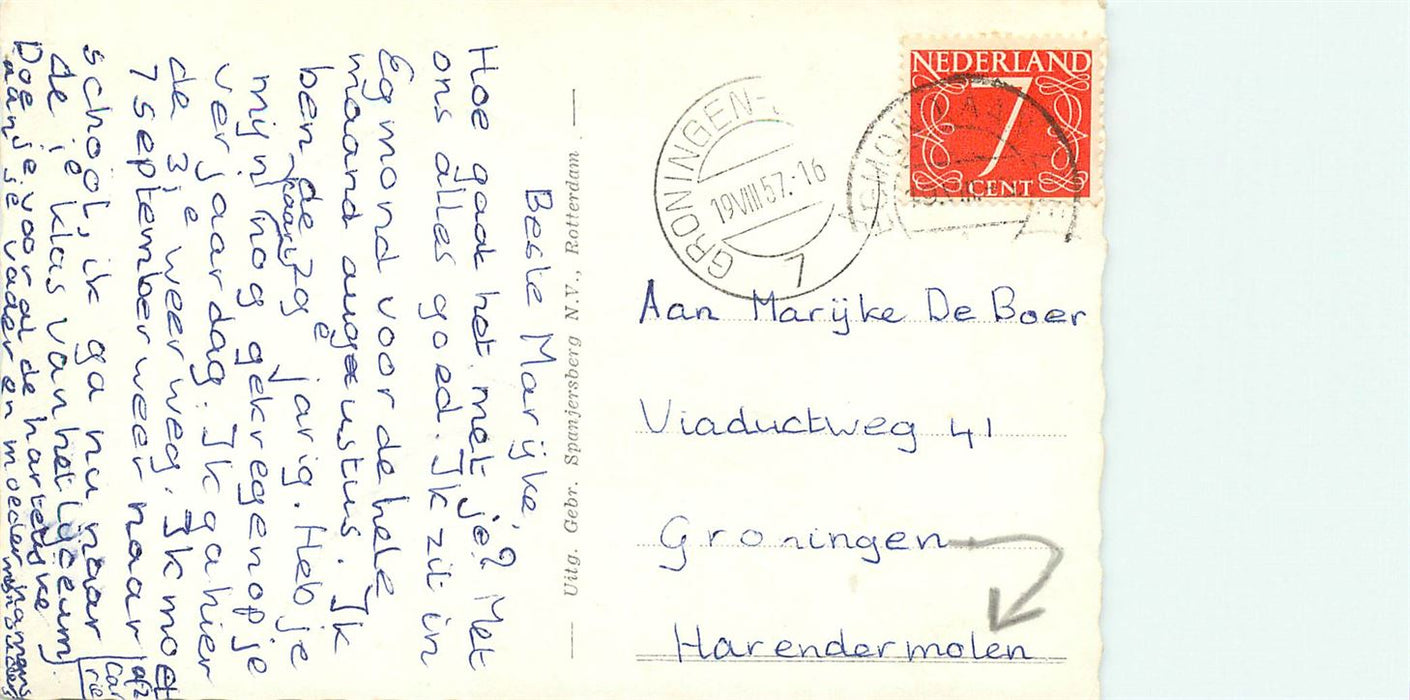 Beste Marijke,
Hoe gaat het met je? Met
ons alles goed. Ik zit in
Egmond voor de hele
maand augustus. Ik
ben de 29e jarig. Heb je
mijn kaart nog gekregen op je
verjaardag. Ik ga hier
de 31e weer weg. Ik moet
7 september weer naar
school, ik ga nu naar
de 1e klas van het lyceum.
Doe je vooral de hartelijke
aan je vader en moeder namens
Car
rie
Uitg. Gebr. Spanjersberg N.V., Rotterdam
NEDERLAND
7
CENT
GRONINGEN
19 VIII 57.-16
1
Aan Marijke De Boer
Viaductweg 41
Groningen
Harendermolen